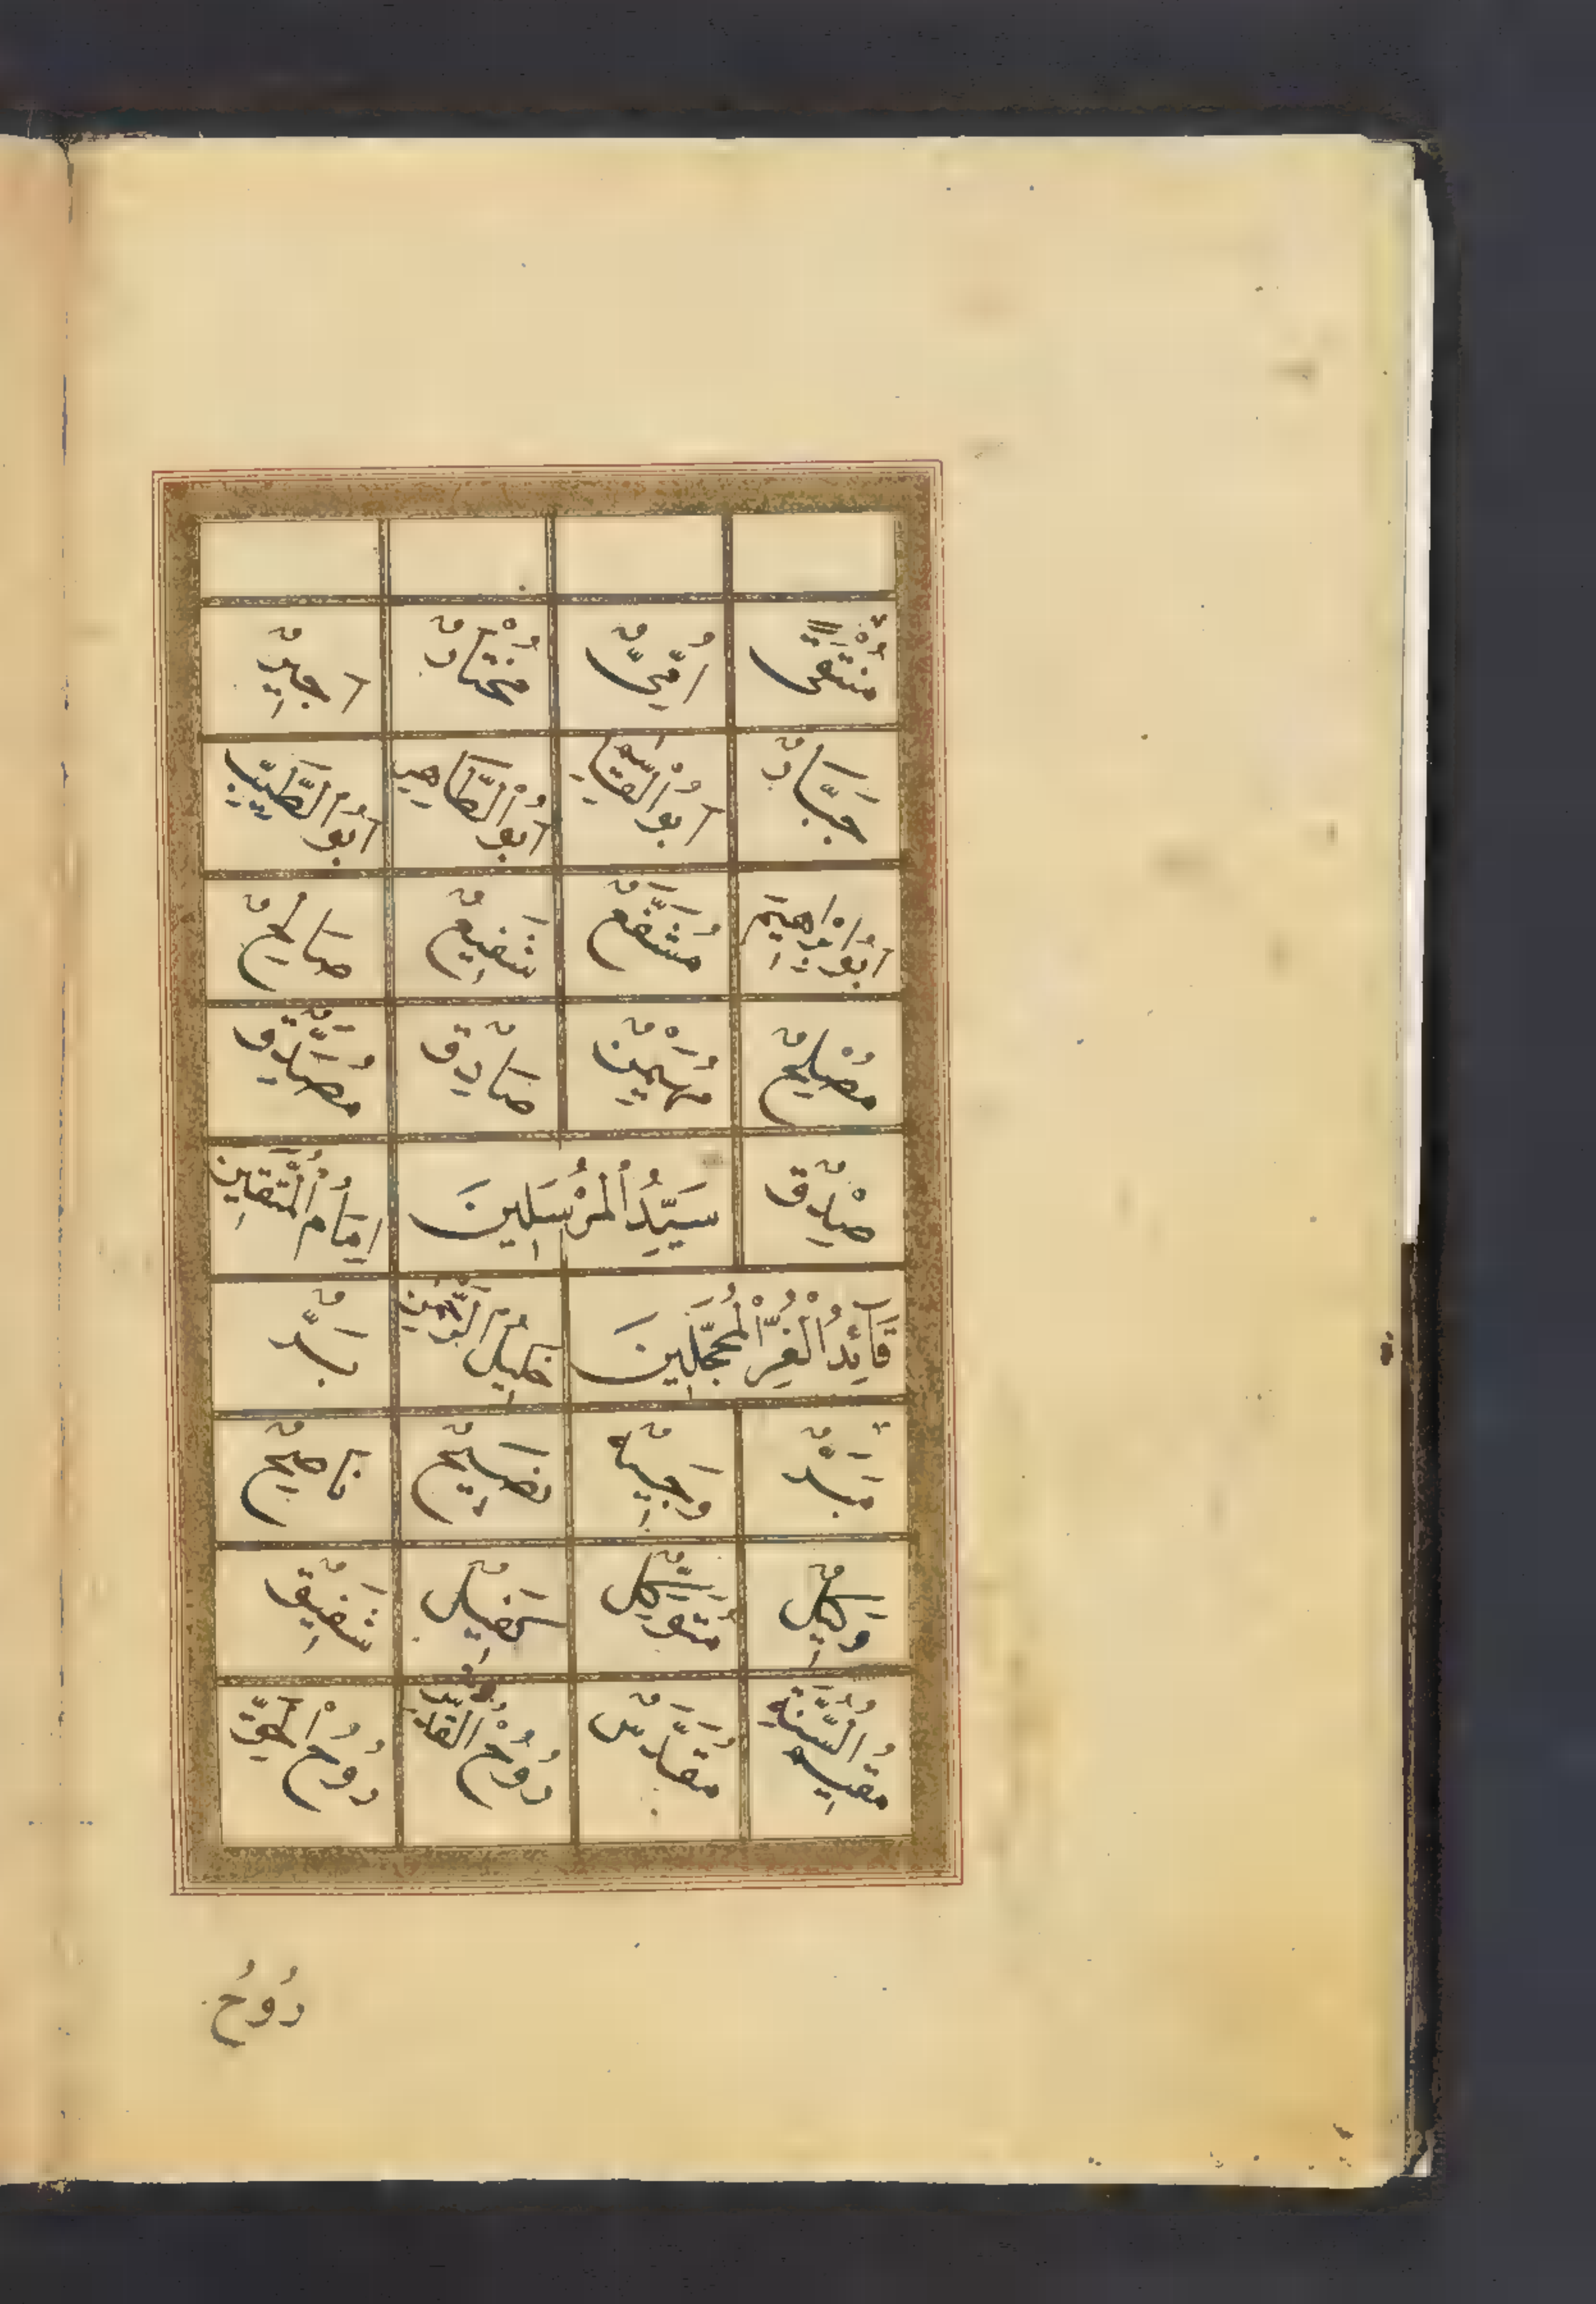 مُنْتَقًى أُمِّيٌّ مُخْتَارٌ أَجِيرٌ
جَبَّارٌ أَبُو الْقَاسِمِ أَبُو الطَّاهِرِ أَبُو الطَّيِّبِ
أَبُو إِبْرَاهِيمَ مُشَفَّعٌ شَفِيعٌ صَالِحٌ
مُصْلِحٌ مُهَيْمِنٌ صَادِقٌ مُصَدِّقٌ
صِدْقٌ سَيِّدُ الْمُرْسَلِينَ إِمَامُ الْمُتَّقِينَ
قَائِدُ الْغُرِّ الْمُحَجَّلِينَ خَلِيلُ الرَّحْمٰنِ بَرٌّ
مَبَرٌّ وَجِيهٌ نَصِيحٌ نَاصِحٌ
وَكِيلٌ مُتَوَكِّلٌ كَفِيلٌ شَفِيقٌ
مُقِيمُ السُّنَّةِ مُقَدَّسٌ رُوحُ الْقُدُسِ رُوحُ الْحَقِّ
رُوحُ